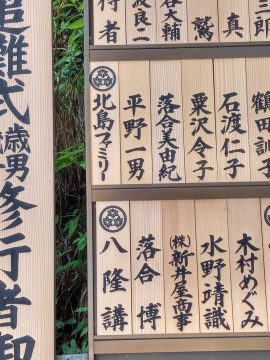 三郎
真
鷲
谷大輔
波良二
行者
鶴田
石渡仁子
粟沢令子
落合美由紀
平野一男
北島ファミリー
木村めぐみ
水野靖識
㈱新井屋商事
落合博
八隆講
追儺式歳男修行者御